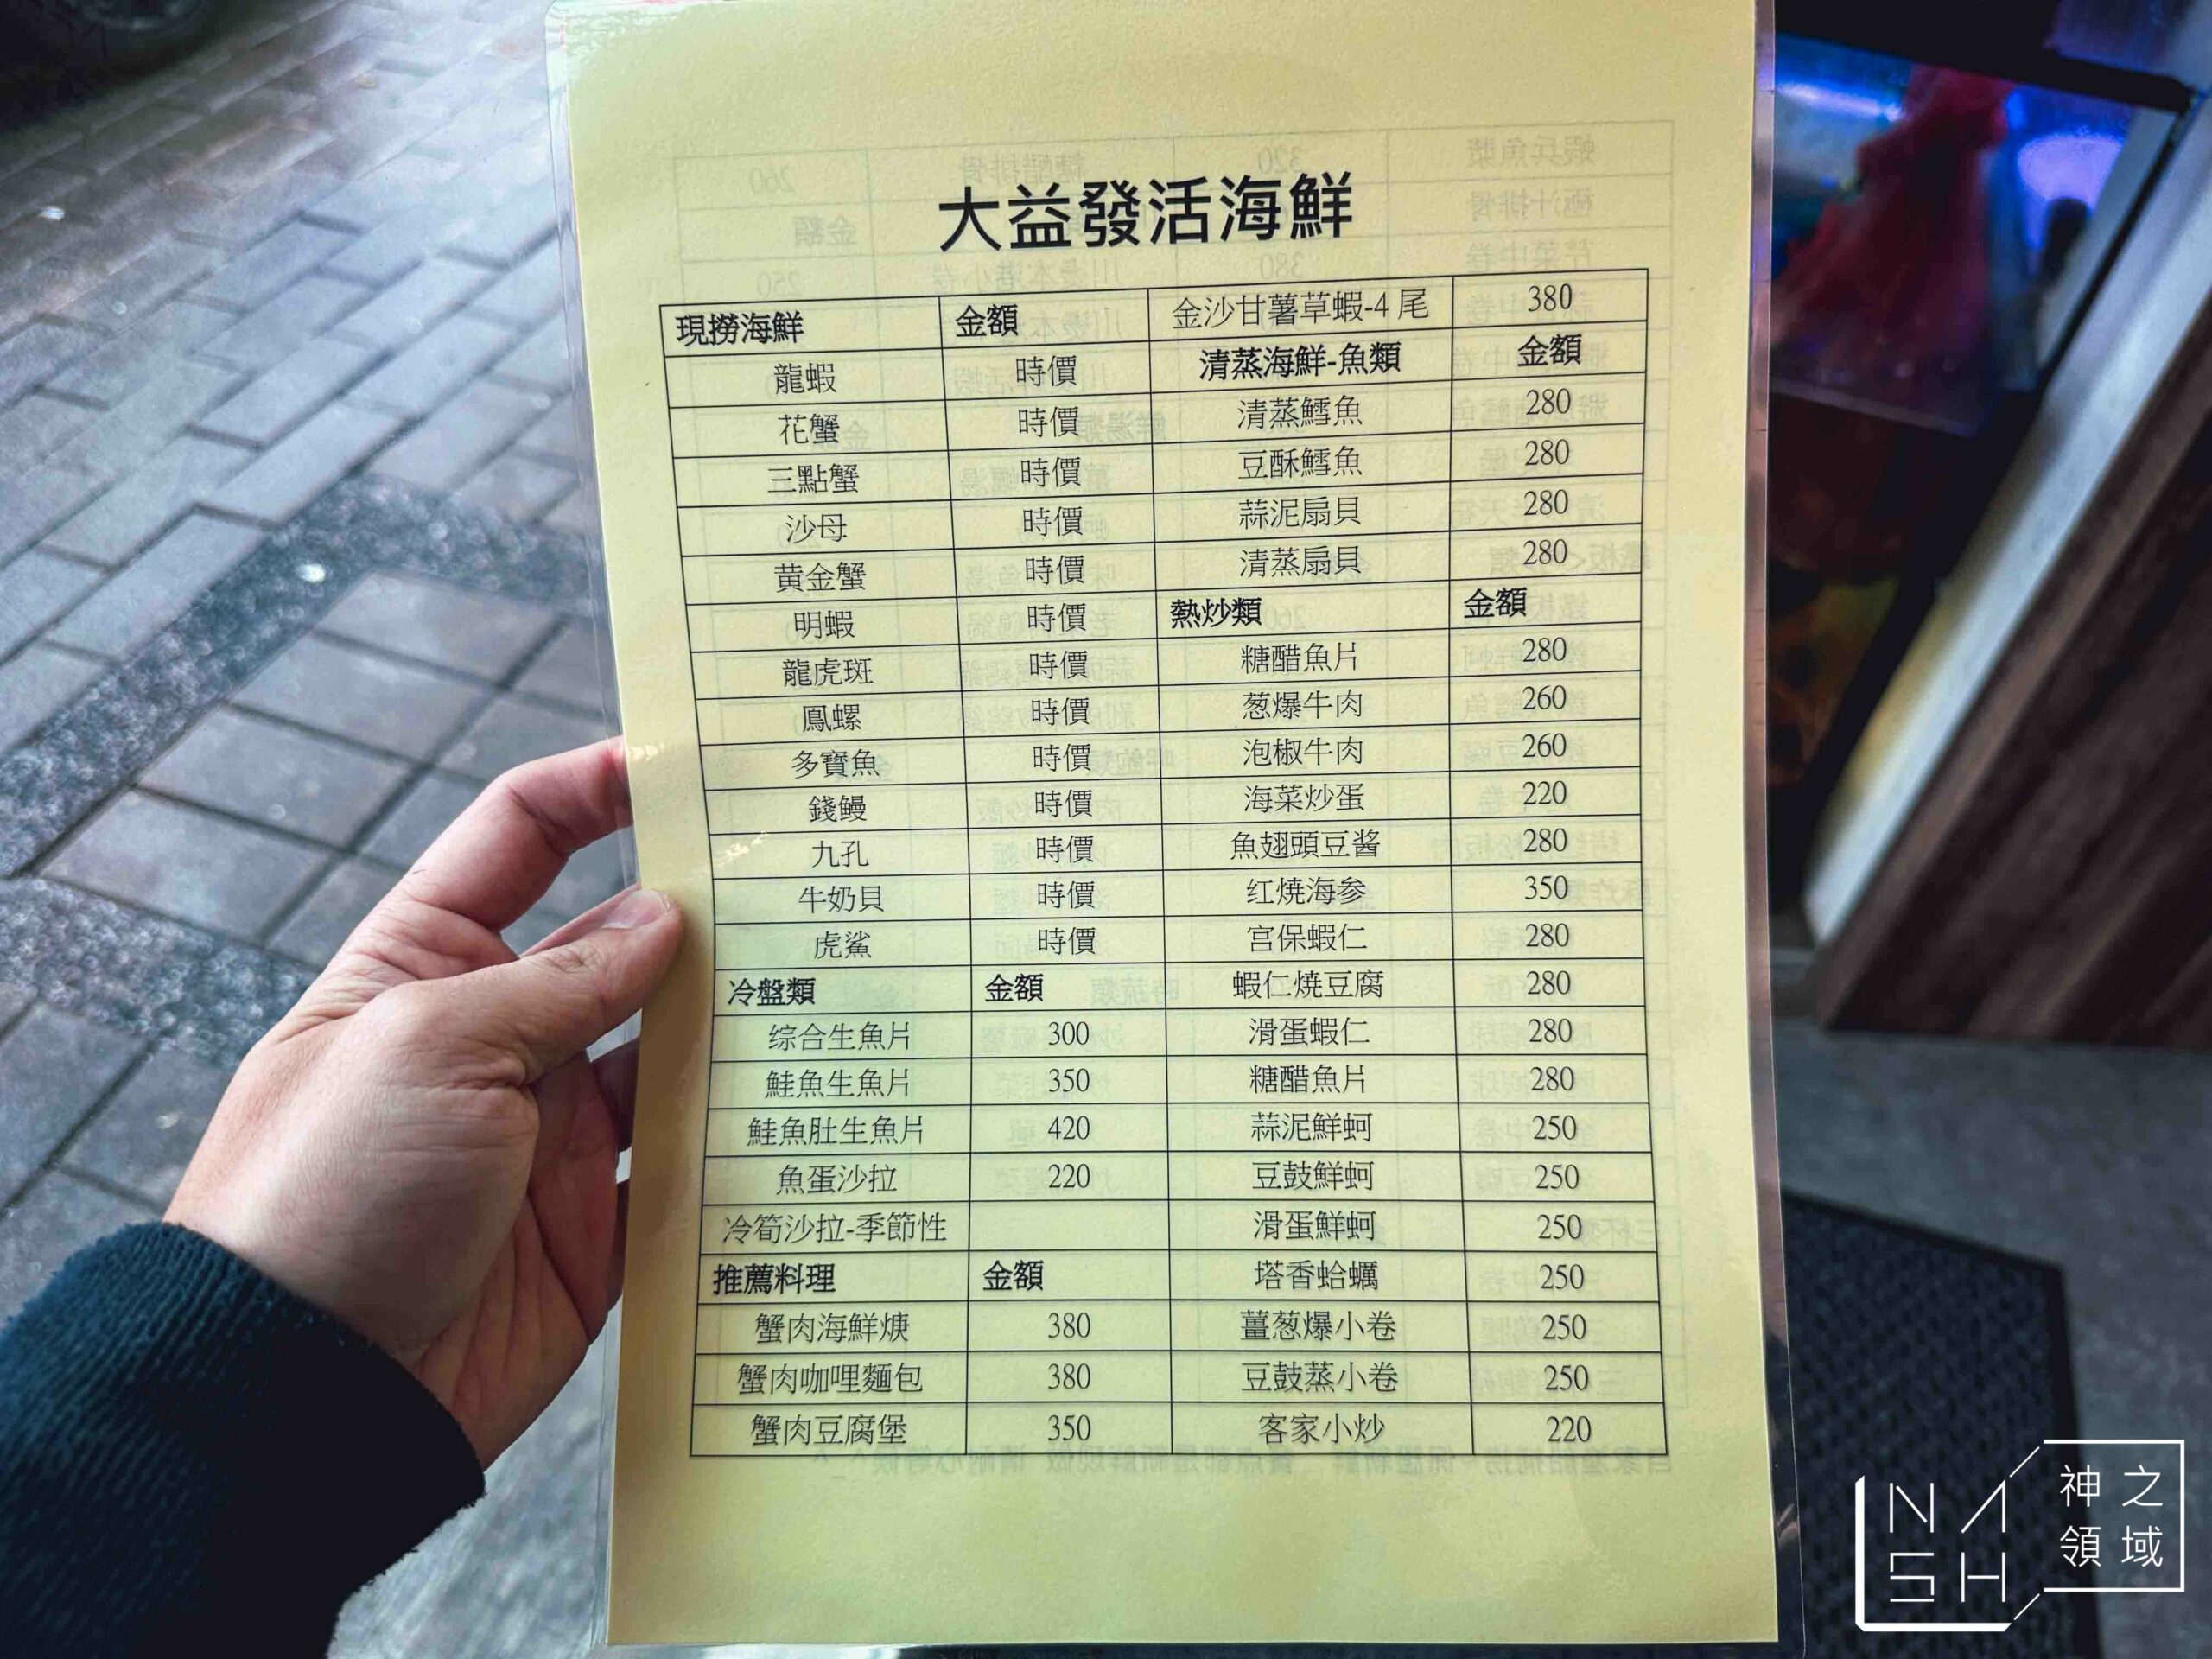 大益發活海鮮
現撈海鮮 金額 金沙甘薯草蝦-4尾 380
龍蝦 時價 清蒸海鮮-魚類 金額
花蟹 時價 清蒸鱈魚 280
三點蟹 時價 豆酥鱈魚 280
沙母 時價 蒜泥扇貝 280
黃金蟹 時價 清蒸扇貝 280
明蝦 時價 熱炒類 金額
龍虎斑 時價 糖醋魚片 280
鳳螺 時價 葱爆牛肉 260
多寶魚 時價 泡椒牛肉 260
錢鰻 時價 海菜炒蛋 220
九孔 時價 魚翅頭豆酱 280
牛奶貝 時價 红燒海参 350
虎鯊 時價 宫保蝦仁 280
冷盤類 金額 蝦仁燒豆腐 280
综合生魚片 300 滑蛋蝦仁 280
鮭魚生魚片 350 糖醋魚片 280
鮭魚肚生魚片 420 蒜泥鮮蚵 250
魚蛋沙拉 220 豆鼓鮮蚵 250
冷筍沙拉-季節性 滑蛋鮮蚵 250
推薦料理 金額 塔香蛤蠣 250
蟹肉海鮮焿 380 薑葱爆小卷 250
蟹肉咖哩麵包 380 豆鼓蒸小卷 250
蟹肉豆腐堡 350 客家小炒 220
NASH 神之領域